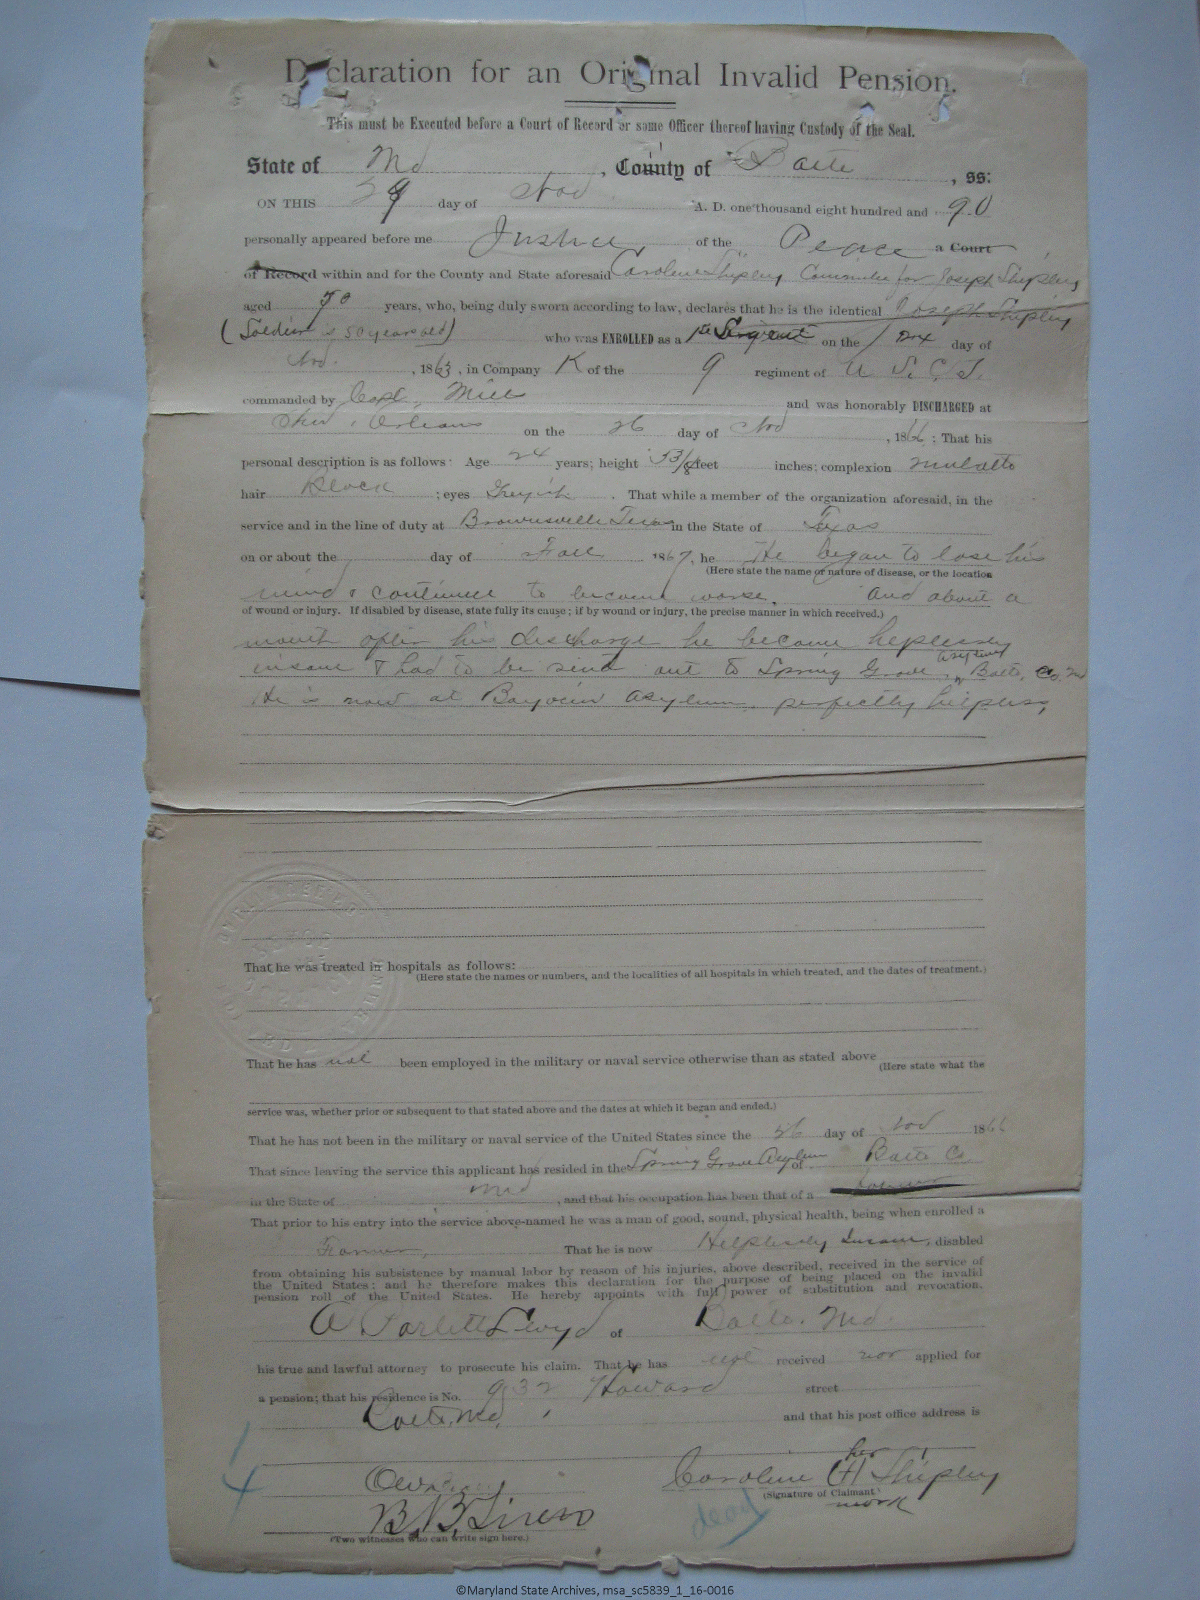 Declaration for an Original Invalid Pension.
This must be Executed before a Court of Record or some Officer thereof having Custody of the Seal.
State of Md , County of Balto , ss:
ON THIS 29 day of Nov A. D. one thousand eight hundred and 90
personally appeared before me Justice of the Peace a Court
of Record within and for the County and State aforesaid Caroline Shipley Committee for Joseph Shipley
aged 50 years, who, being duly sworn according to law, declares that he is the identical Joseph Shipley
(Soldier is 50 years old) who was ENROLLED as a 1st Sergeant on the day of
Nov. , 1863, in Company K of the 9 regiment of U. S. C. T.
commanded by Capt. Mills and was honorably DISCHARGED at
New Orleans on the 26 day of Nov , 1866 ; That his
personal description is as follows: Age 24 years; height feet inches; complexion mulatto
hair Black ; eyes Greyish . That while a member of the organization aforesaid, in the
service and in the line of duty at Brownsville Texas in the State of Texas
on or about the day of Fall 1867, he He began to lose his
(Here state the name or nature of disease, or the location
mind & continued to become worse. And about a
of wound or injury. If disabled by disease, state fully its cause; if by wound or injury, the precise manner in which received.)
month after his discharge he became helplessly
insane & had to be sent out to Spring Grove Asylum Balto. Co. Md
He is now at Bayview Asylum, perfectly helpless,
That he was treated in hospitals as follows:
(Here state the names or numbers, and the localities of all hospitals in which treated, and the dates of treatment.)
That he has not been employed in the military or naval service otherwise than as stated above
(Here state what the
service was, whether prior or subsequent to that stated above and the dates at which it began and ended.)
That he has not been in the military or naval service of the United States since the 26 day of Nov 1866
That since leaving the service this applicant has resided in the Spring Grove Asylum of Balto Co
in the State of Md , and that his occupation has been that of a
That prior to his entry into the service above-named he was a man of good, sound, physical health, being when enrolled a
Farmer, That he is now Helplessly Insane, disabled
from obtaining his subsistence by manual labor by reason of his injuries, above described, received in the service of
the United States; and he therefore makes this declaration for the purpose of being placed on the invalid
pension roll of the United States. He hereby appoints with full power of substitution and revocation,
A Parlett Lloyd of Balto. Md.
his true and lawful attorney to prosecute his claim. That he has not received nor applied for
a pension; that his residence is No. 932 Howard street
Balto, Md, and that his post office address is
Caroline her Shipley
(Signature of Claimant.)
mark
B. B.
(Two witnesses who can write sign here.)
dead
©Maryland State Archives, msa_sc5839_1_16-0016